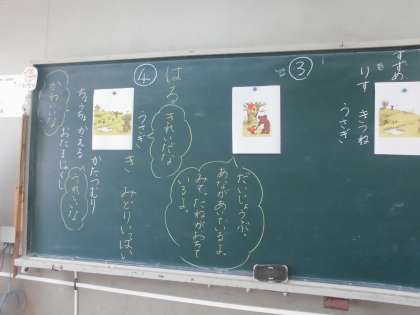 すずめ
りす も きつね
うさぎ
③
だいじょうぶ。
あながあいているよ。
みて。たねがおちて
いるよ。
④
はる
きれいだな
うさぎ
き みどりいっぱい
かたつむり
ちょうちょ かえる
おたまじゃくし
きれいだな
かわいいな